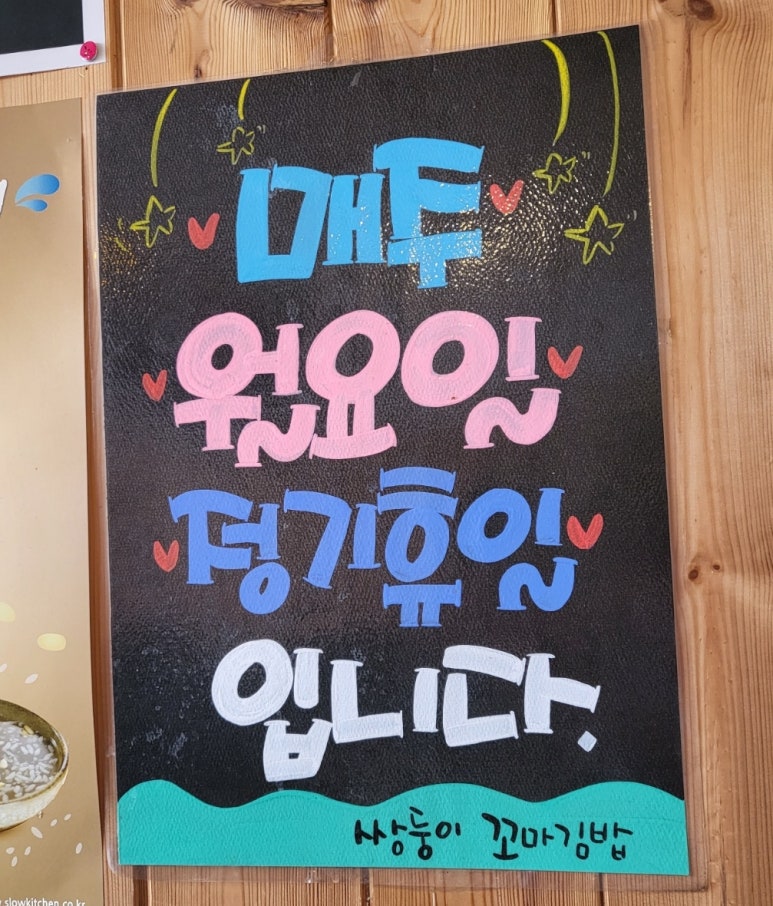 매주
월요일
정기휴일
입니다.
쌍둥이 꼬마김밥
slowkitchen.co.kr